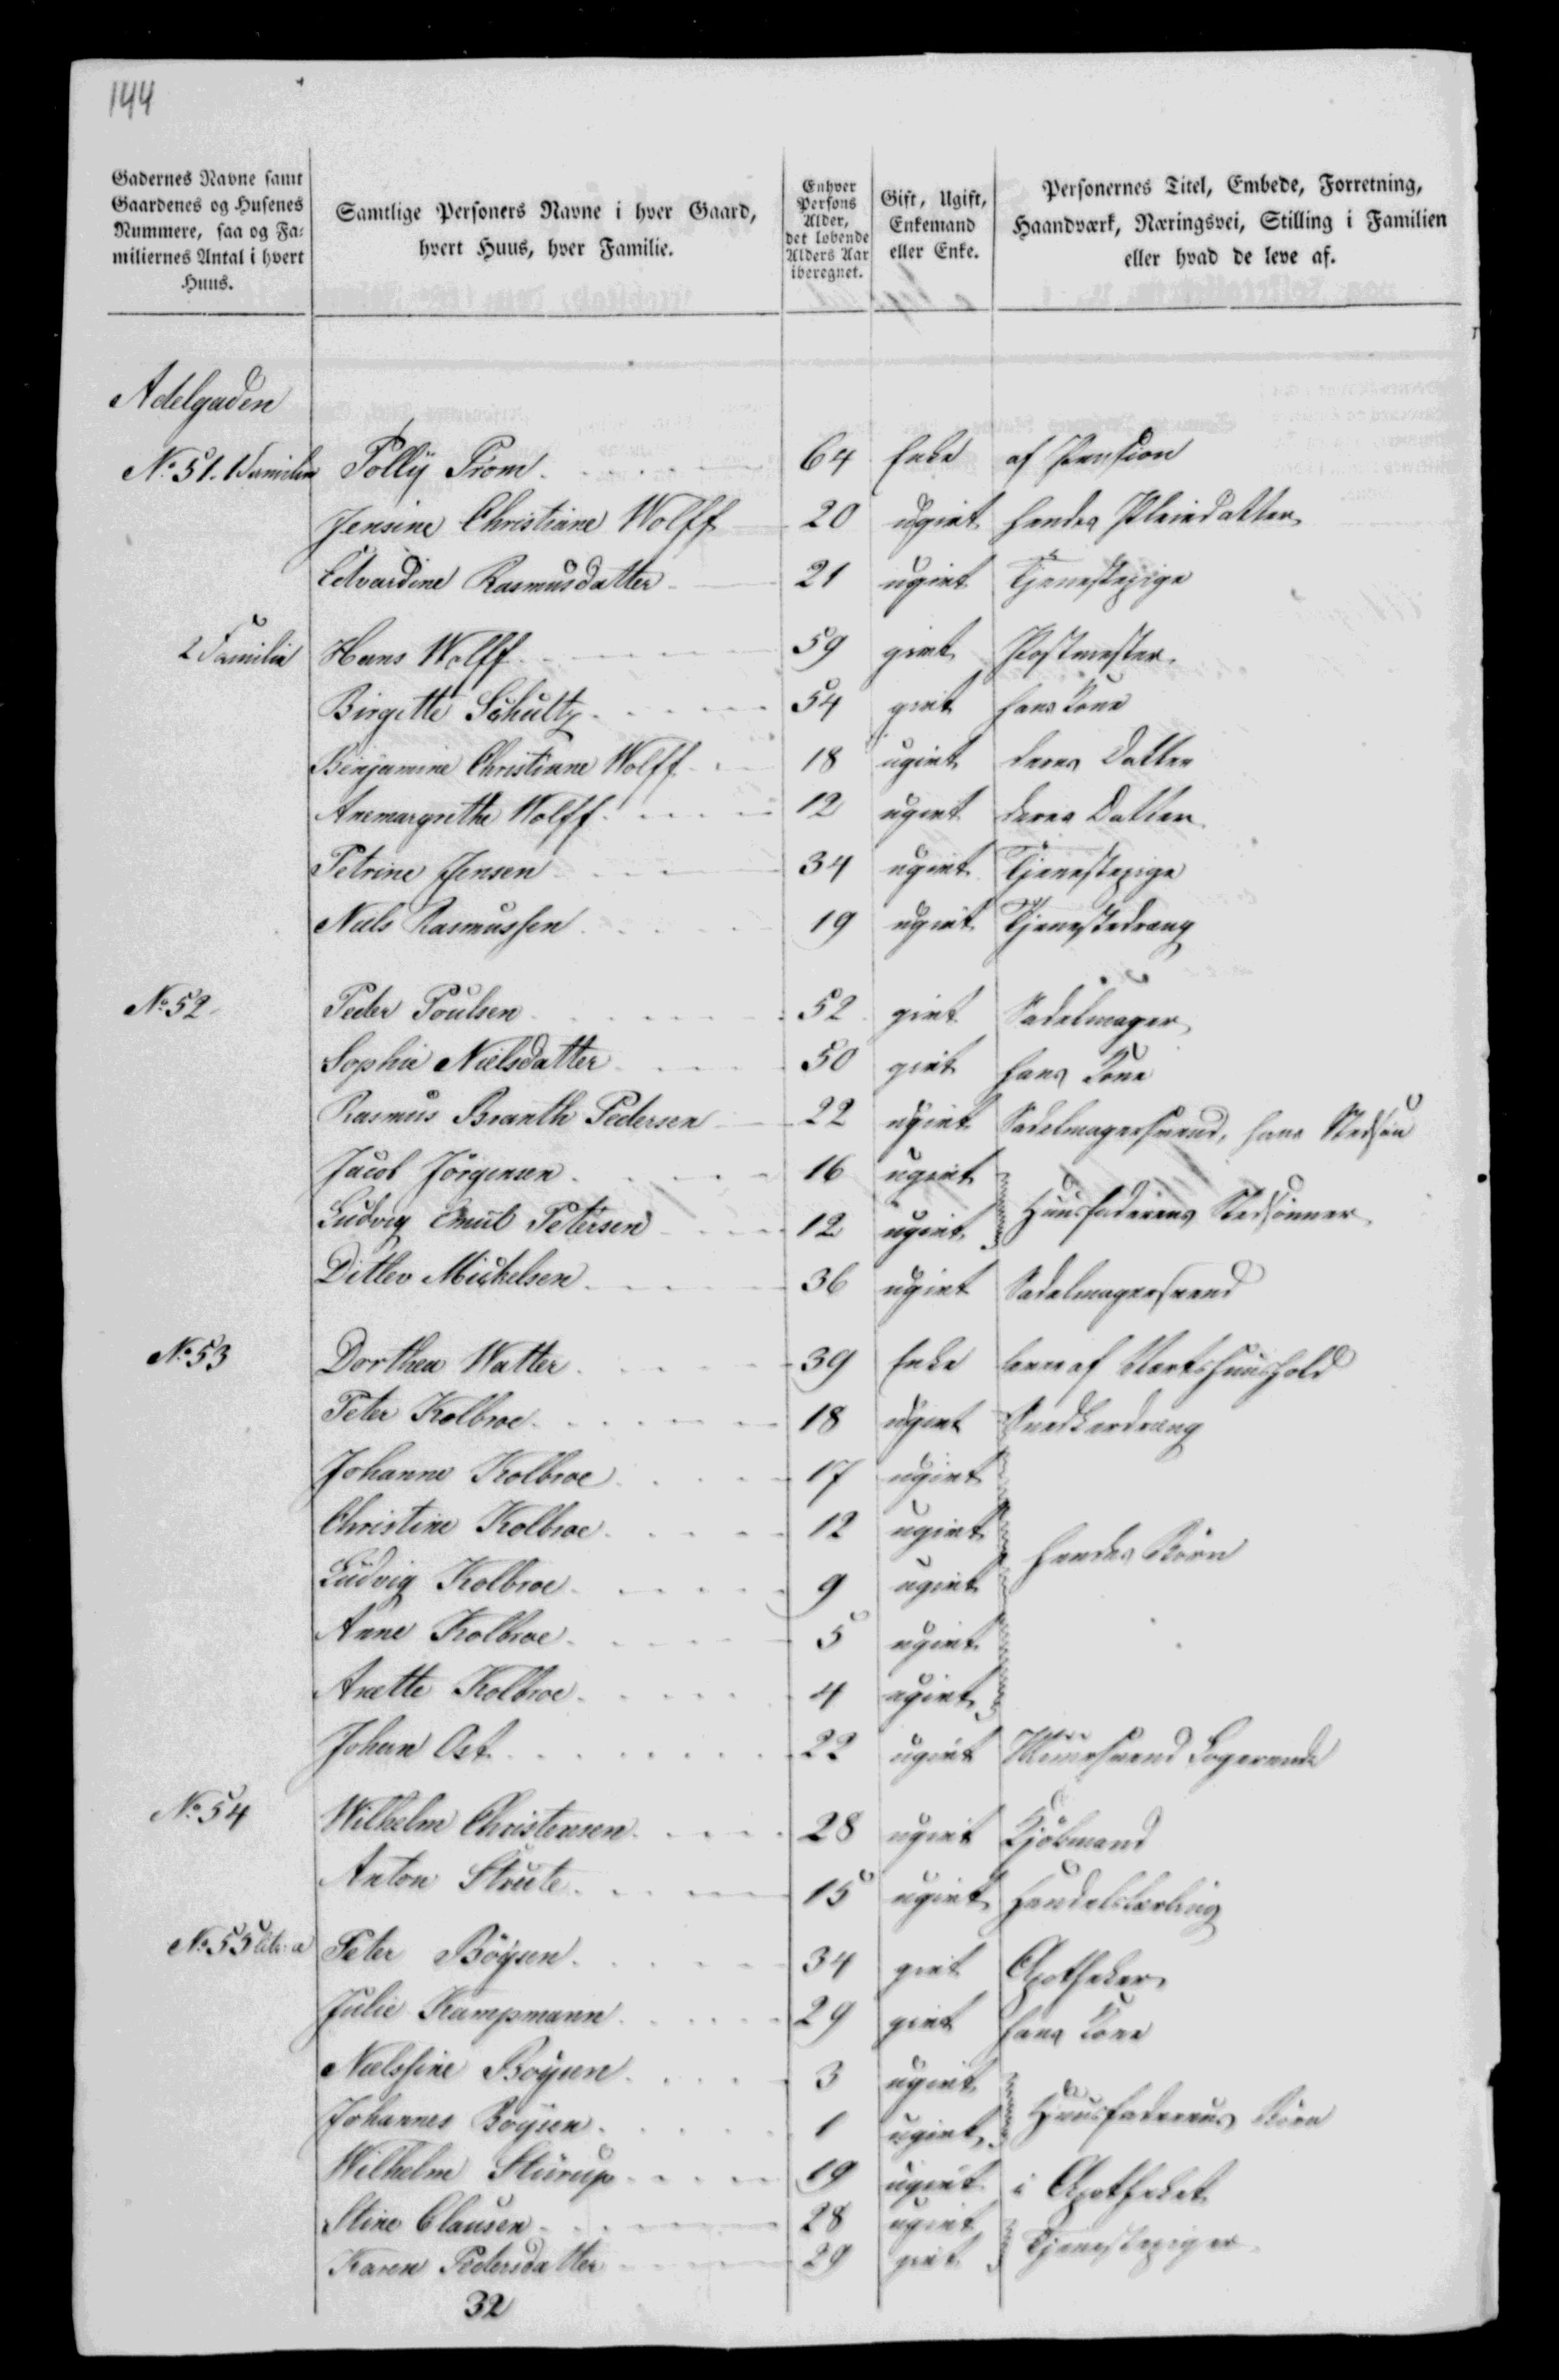 144
Gadernes Navne samt Gaardenes og Husenes Nummere, saa og Fa-miliernes Antal i hvert Huus.
Samtlige Personers Navne i hver Gaard, hvert Huus, hver Familie.
Enhver Persons Alder, det løbende Alders Aar iberegnet.
Gift, Ugift, Enkemand eller Enke.
Personernes Titel, Embede, Forretning, Haandværk, Næringsvei, Stilling i Familien eller hvad de leve af.
Adelgaden
No 51. 1 Familie Polly Prom 64 Enke af Pension
Jensine Christiane Wolff 20 ugivt hendes Pleiedatter
Edvardine Rasmusdatter 21 ugivt Tjenestepige
2 Familie Hans Wolff 59 givt Postmester
Birgitte Schultz 54 givt hans Kone
Benjamine Christiane Wolff 18 ugivt deres Datter
Anemargrethe Wolff 12 ugivt deres Datter
Petrine Jensen 34 ugivt Tjenestepige
Niels Rasmussen 19 ugivt Tjenestedreng
No 52 Peder Poulsen 52 givt Sadelmager
Sophie Nielsdatter 50 givt hans Kone
Rasmus Branth Pedersen 22 ugivt Sadelmagersvend, hans Stedsøn
Jacob Jörgensen 16 ugivt
Ludvig Emil Petersen 12 ugivt Huusfaderens Stedsönner
Ditlev Mickelsen 36 ugivt Sadelmagersvend
No 53 Dorthea Watter 39 Enke lever af Vertshuushold
Peter Kolbroe 18 ugivt Snedkerdreng
Johanne Kolbroe 17 ugivt
Christine Kolbroe 12 ugivt hendes Börn
Ludvig Kolbroe 9 ugivt
Anne Kolbroe 5 ugivt
Anette Kolbroe 4 ugivt
Johan Ost 22 ugivt Muursvend Logerende
No 54 Wilhelm Christensen 28 ugivt Kjöbmand
Anton Strute 15 ugivt Handelslærling
No 55 litr. a Peter Böysen 34 givt Apotheker
Julie Kampmann 29 givt hans Kone
Nielssine Boysen 3 ugivt
Johannes Boysen 1 ugivt Huusfaderens Börn
Wilhelm Stürup 19 ugivt i Apotheket
Stine Clausen 28 ugivt
Karen Pedersdatter 29 givt Tjenestepiger
32